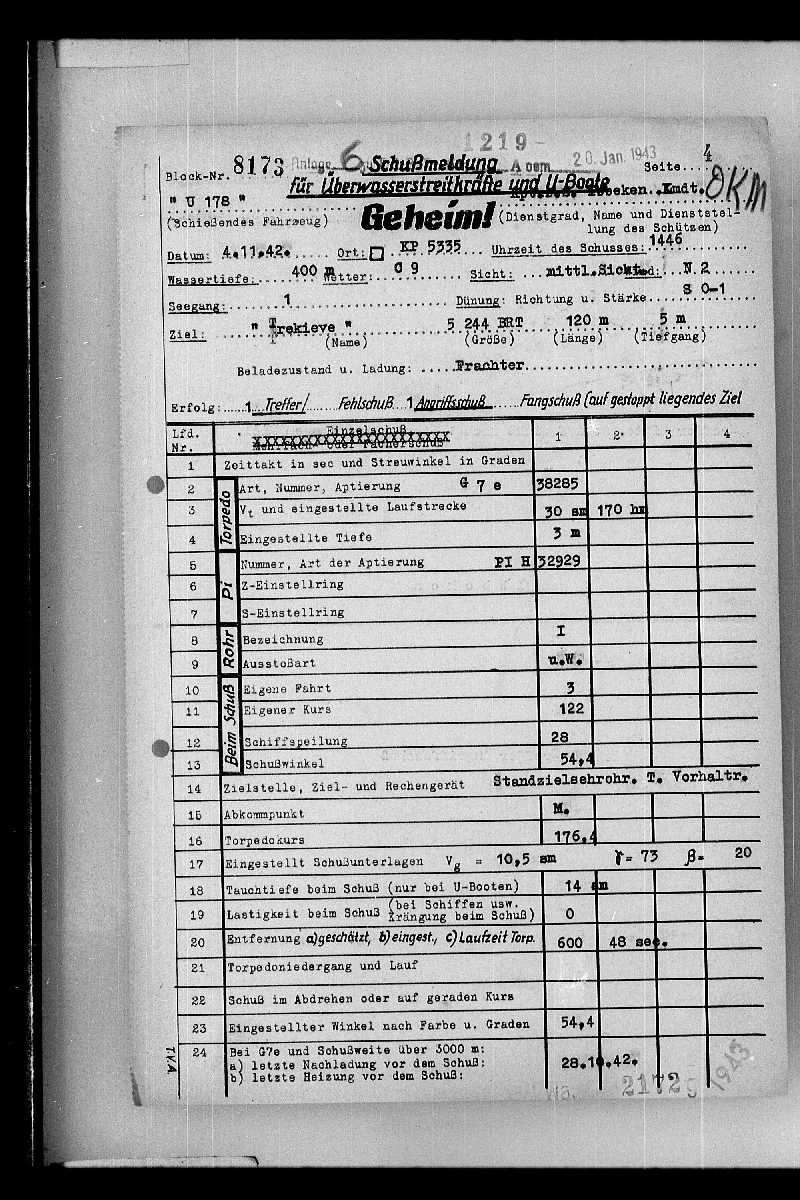 1219-
Block-Nr. 8173 Anlage 6 Schußmeldung A vom 20. Jan. 1943 Seite 4
für Überwasserstreitkräfte und U-Boote Kmdt. OKM
" U 178 "
(Schießendes Fahrzeug) Geheim! (Dienstgrad, Name und Dienststel-
lung des Schützen)
Datum: 4.11.42. Ort: KP 5335 Uhrzeit des Schusses: 1446
Wassertiefe: 400 m Wetter: C 9 Sicht: mittl.Sicht. N 2
Seegang: 1 Dünung: Richtung u. Stärke S 0-1
Ziel: " Trekieve " 5 244 BRT 120 m 5 m
(Name) (Größe) (Länge) (Tiefgang)
Beladezustand u. Ladung: Frachter
Erfolg: 1 Treffer/ Fehlschuß 1 Angriffsschuß Fangschuß (auf gestoppt liegendes Ziel
Lfd. Nr. Einzelschuß 1 2 3 4
Mehrfach- oder Fächerschuß
1 Zeittakt in sec und Streuwinkel in Graden
Torpedo
2 Art, Nummer, Aptierung G 7 e 38285
3 Vt und eingestellte Laufstrecke 30 sm 170 hm
4 Eingestellte Tiefe 3 m
Pi
5 Nummer, Art der Aptierung PI H 32929
6 Z-Einstellring
7 S-Einstellring
Rohr
8 Bezeichnung I
9 Ausstoßart u.W.
Beim Schuß
10 Eigene Fahrt 3
11 Eigener Kurs 122
12 Schiffspeilung 28
13 Schußwinkel 54,4
14 Zielstelle, Ziel- und Rechengerät Standzielsehrohr. T. Vorhaltr.
15 Abkommpunkt M.
16 Torpedokurs 176,4
17 Eingestellt Schußunterlagen Vg = 10,5 sm γ= 73 β= 20
18 Tauchtiefe beim Schuß (nur bei U-Booten) 14 m
19 Lastigkeit beim Schuß (bei Schiffen usw. Krängung beim Schuß) 0
20 Entfernung a)geschätzt, b)eingest., c)Laufzeit Torp. 600 48 sec.
21 Torpedoniedergang und Lauf
22 Schuß im Abdrehen oder auf geraden Kurs
23 Eingestellter Winkel nach Farbe u. Graden 54,4
24 Bei G7e und Schußweite über 3000 m:
a) letzte Nachladung vor dem Schuß: 28.10.42.
b) letzte Heizung vor dem Schuß:
T.V.A.
2172 1943